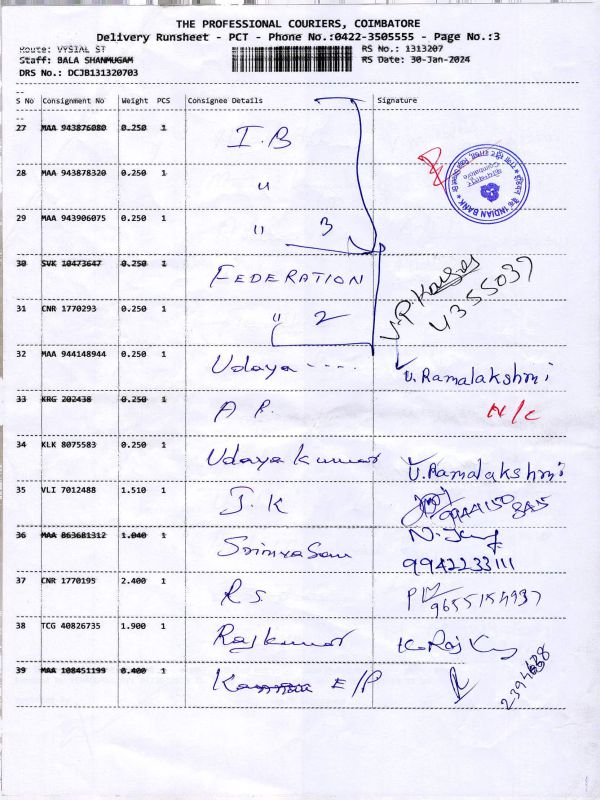 THE PROFESSIONAL COURIERS, COIMBATORE
Delivery Runsheet - PCT - Phone No.:0422-3505555 - Page No.:3
Route: VYSIAL ST RS No.: 1313207
Staff: BALA SHANMUGAM RS Date: 30-Jan-2024
DRS No.: DCJB131320703
S No Consignment No Weight PCS Consignee Details Signature
27 MAA 943876080 0.250 1 I.B
28 MAA 943878320 0.250 1 "
INDIAN BANK
Coimbatore
29 MAA 943906075 0.250 1 " 3
30 SVK 10473647 0.250 1 FEDERATION
4355037
31 CNR 1770293 0.250 1 " 2
32 MAA 944148944 0.250 1 Udaya ---- U.Ramalakshmi
33 KRG 202438 0.250 1 A P. N/C
34 KLK 8075583 0.250 1 Udaya kumar U.Ramalakshmi
35 VLI 7012488 1.510 1 J.K 9944150845
36 MAA 863681312 1.040 1 Srinivasan
9942233111
37 CNR 1770195 2.400 1 R S. 9655154937
38 TCG 40826735 1.900 1 Rajkumar K.Raj
39 MAA 108451199 0.400 1 E/P
2394688